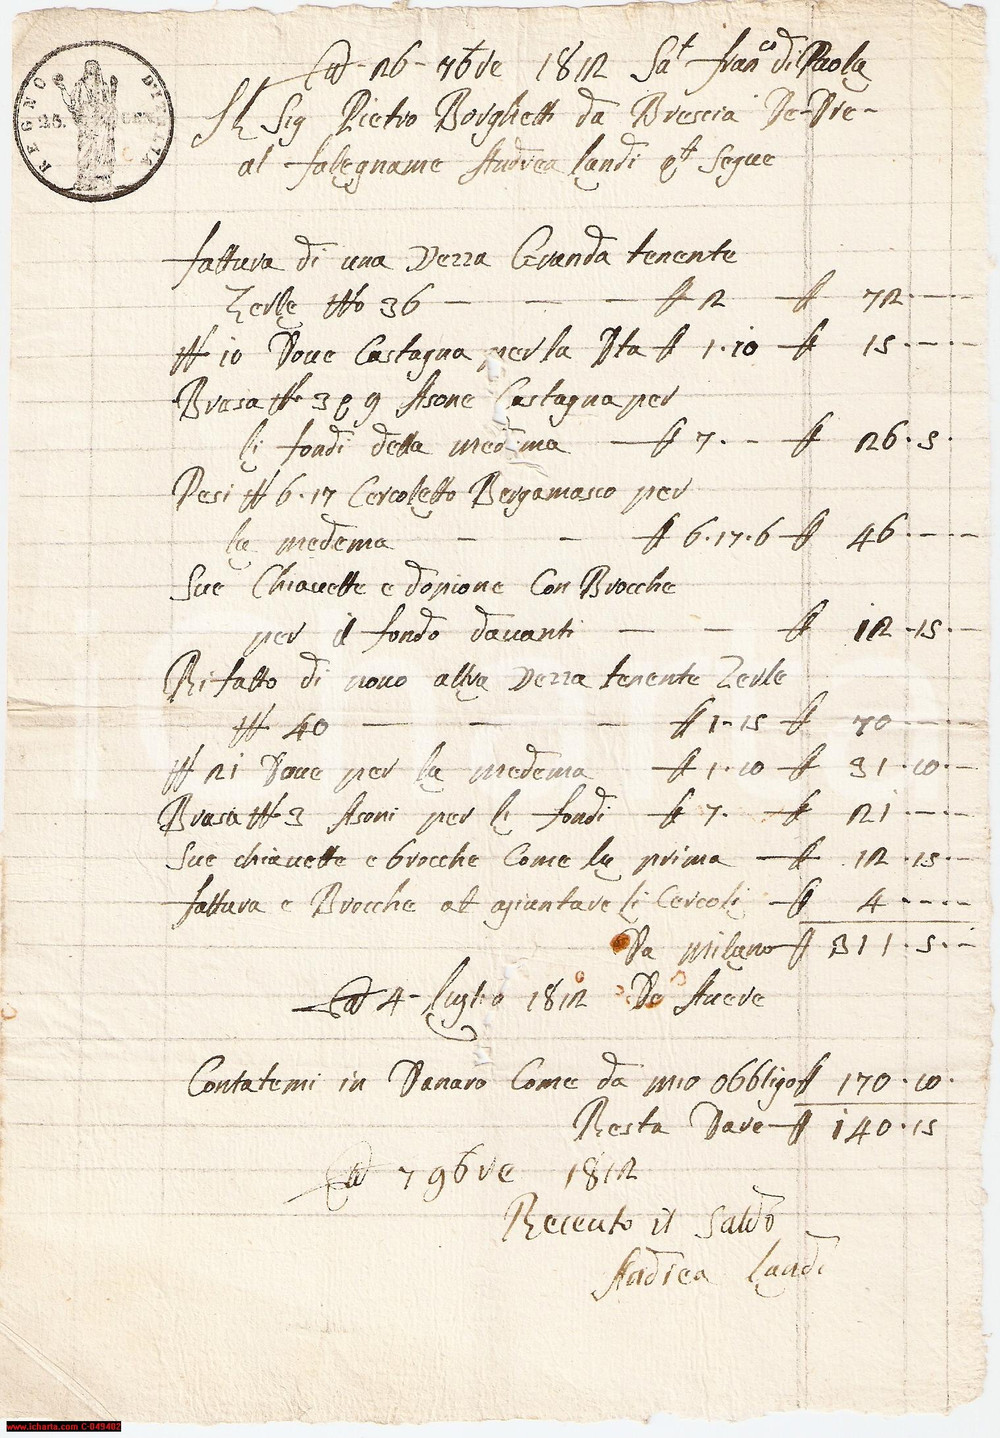 REGNO D'ITALIA
25. CEN.
Ad - 26 - 7bre 1812 Sat Franco di Paola
Il Sig Pietro Borghetti da Brescia De-Dre-
al falegname Andrea Landi qt Segue
Fattura di una Vezza Granda tenente
Zerle No 36 — — — £ 2 £ 72.--
No 10 Doue Castagna per la Dta £ 1.10 £ 15.--
Brasa No 3 e 9 Asone Castagna per
li fondi della medma — £ 7.- £ 26.5.
Pesi No 6.17 Cercoletto Bergamasco per
la medema — — £ 6.17.6 £ 46.--
Sue Chiauette e dopione Con Brocche
per il fondo dauanti — — £ 12.15.
Rifatto di nouo altra Vezza tenente Zerle
No 40 — — — £ 1.15 £ 70.--
No 21 Doue per la medema £ 1.10 £ 31.10.
Brasa No 3 Asoni per li fondi £ 7. £ 21.--
Sue chiauette e brocche Come la prima — £ 12.15.
fattura e Brocche at agiantare li Cercoli £ 4.--
Da Milano £ 311.5.-
Ad 4 - Luglio 1812 De Auere
Contatemi in Danaro Come da mio obbligo £ 170.10.
Resta Dare £ 140.15
Ad 7 9bre 1812
Receuto il Saldo
Andrea Landi
www.icharta.com C-049402